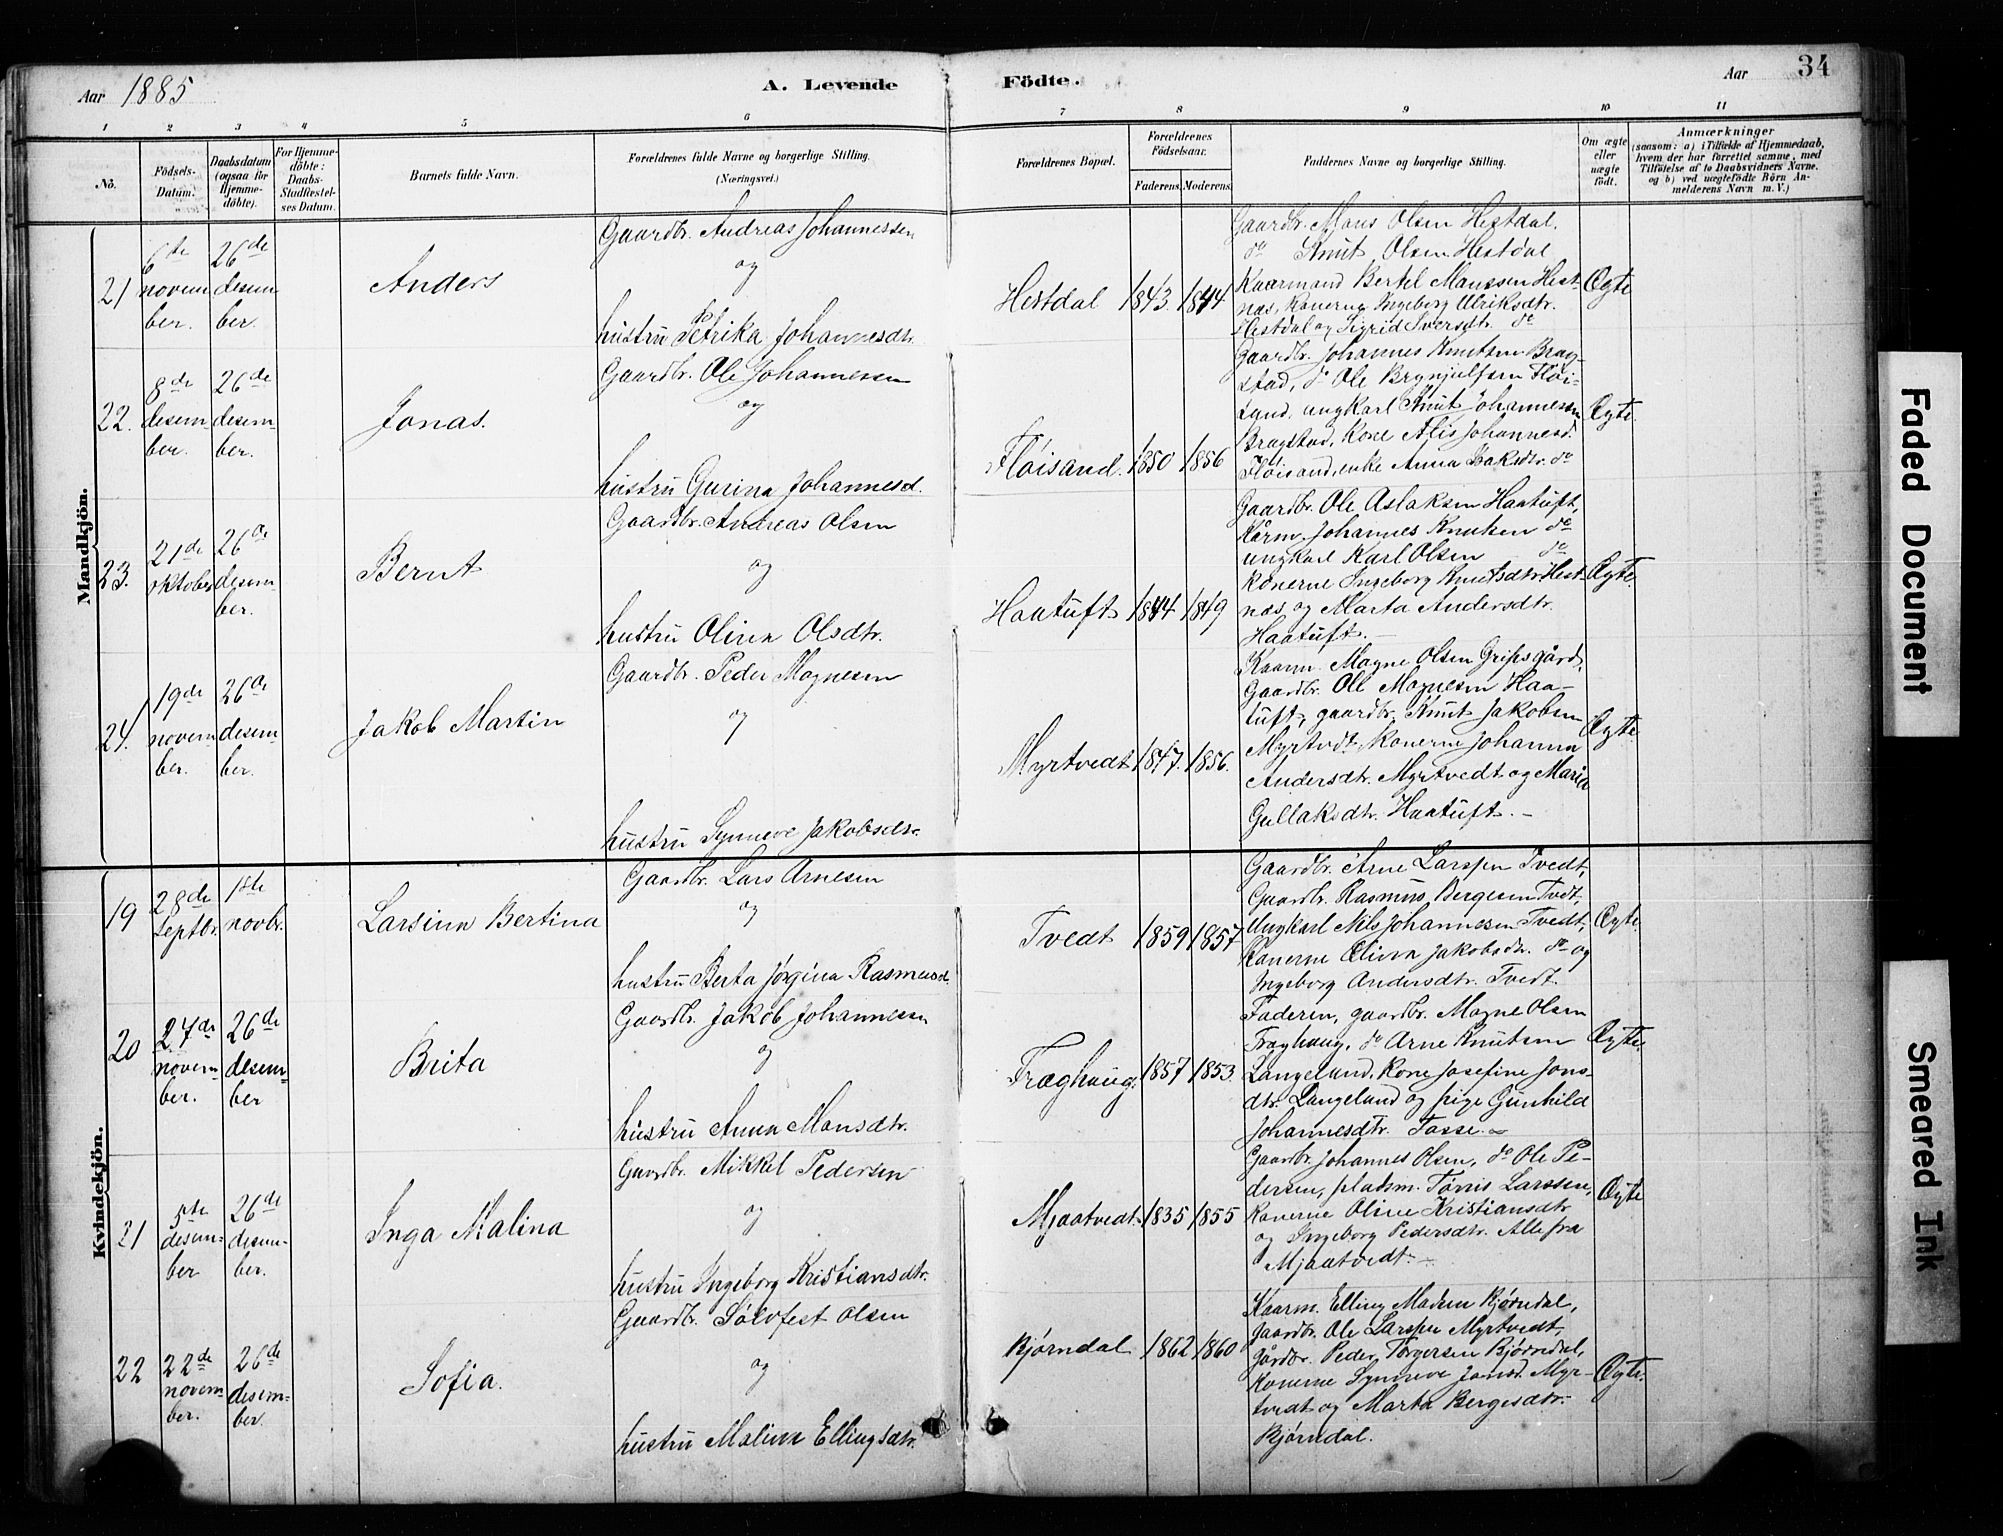 Aar 1885
A. Levende
Födte.
Aar
34
1 2 3 4 5 6 7 8 9 10 11
No.
Födsels-
Datum.
Daabsdatum
(ogsaa for
Hjemme-
döbte).
For Hjemme-
döbte:
Daabs-
Stadfæstel-
ses Datum.
Barnets fulde Navn.
Forældrenes fulde Navne og borgerlige Stilling.
(Næringsvei.)
Forældrenes Bopæl.
Forældrenes
Födselsaar.
Faderens. Moderens.
Faddernes Navne og borgerlige Stilling.
Om ægte
eller
uægte
født.
Anmærkninger
(saasom: a) i Tilfælde af Hjemmedaab,
hvem der har forrettet samme, med
Tilföielse af to Daabsvidners Navne.
og b) ved uægtefödte Börn An-
melderens Navn m. V.)
Mandkjön.
21
6te
novem
ber.
26de
desem
ber.
Anders
Gaardbr. Andreas Johannessen
og
hustru Petrika Johannesdtr.
Hestdal
1843.
1844
Gaardbr. Mons Olsen Hestdal.
do Knut Olsen Hestdal
Kaarmand Bertel Monssen Hest-
nes, Konerne Ingeborg Ulriksdtr.
Hestdal og Sigrid Iversdtr. do
Ægte
22.
8de
desem-
ber.
26de
desem-
ber.
Jonas.
Gaardbr. Ole Johannessen
og
hustru Gurina Johannesd.
Fløisand.
1850
1856
Gaardbr. Johannes Knutsen Brag-
stad, do Ole Brynjulfsen Fløi-
sand, ungkarl Knut Johannessen
Bragstad, Kone Alis Johannesd.
Fløisand, enke Anna Isaksdtr. do
Ægte.
23.
21de
oktober
26de
desem-
ber.
Bernt
Gaardbr. Andreas Olsen
og
hustru Olina Olsdtr.
Haatuft
1844
1849
Gaardbr. Ole Aslaksen Haatuft,
Kårm. Johannes Knutsen do
ungkarl Karl Olsen do
Konerne Ingeborg Knutsdtr. Hest-
nes og Marta Andersdtr.
Haatuft.
Ægte.
24.
19de
novem-
ber.
26de
desem-
ber.
Jakob Martin
Gaardbr. Peder Magnesen
og
hustru Synneve Jakobsdtr.
Myrtvedt
1847.
1856.
Kaarm. Magne Olsen Gripsgård,
Gaardbr. Ole Magnesen Haa-
tuft, gaardbr. Knut Jakobsen
Myrtvedt, Konerne Johanna
Andersdtr. Myrtvedt og Maria
Gullaksdtr. Haatuft.
Ægte.
Kvindekjön.
19
28de
Septbr.
1ste
novbr.
Larsina Bertina
Gaardbr. Lars Arnesen
og
hustru Berta Jørgina Rasmusd.
Tvedt
1859
1857
Gaardbr. Arne Larssen Tvedt,
Gaardbr. Rasmus Bergesen Tvedt,
Ungkarl Nils Johannesen Tvedt,
Konerne Olivia Jakobsdtr. do og
Ingeborg Andersdtr. Tvedt.
Ægte.
20
27de
novem-
ber.
26de
desem-
ber
Brita
Gaardbr. Jakob Johannessen
og
hustru Anna Monsdtr.
Træghaug.
1857
1853.
Faderen, gaardbr. Magne Olsen
Træghaug, do Arne Knutsen
Langeland, Kone Josefine Jons-
dtr. Langeland og pige Gunhild
Johannesdtr. Fosse.
Ægte.
21
5te
desem-
ber
26de
desem-
ber.
Inga Malina
Gaardbr. Mikkel Pedersen
og
hustru Ingeborg Kristiansdtr.
Mjaatvedt.
1835
1855
Gaardbr. Johannes Olsen, do Ole Pe-
dersen, pladsm. Tørris Larssen,
Konerne Oline Kristiansdtr
og Ingeborg Pedersdtr. Alle fra
Mjaatvedt.
Ægte
22
22de
novem-
ber.
26de
desem-
ber.
Sofia.
Gaardbr. Sølvfest Olsen
og
hustru Malina Ellingsdtr.
Bjørndal
1862
1860
Kaarm. Elling Madsen Bjørndal,
gaardbr. Ole Larssen Myrtvedt,
gårdbr. Peder Torgersen Bjørndal,
Konerne Synneve Jonsd. Myr-
tvedt og Marta Bergesdtr.
Bjørndal.
Ægte.
Faded Document
Smeared Ink